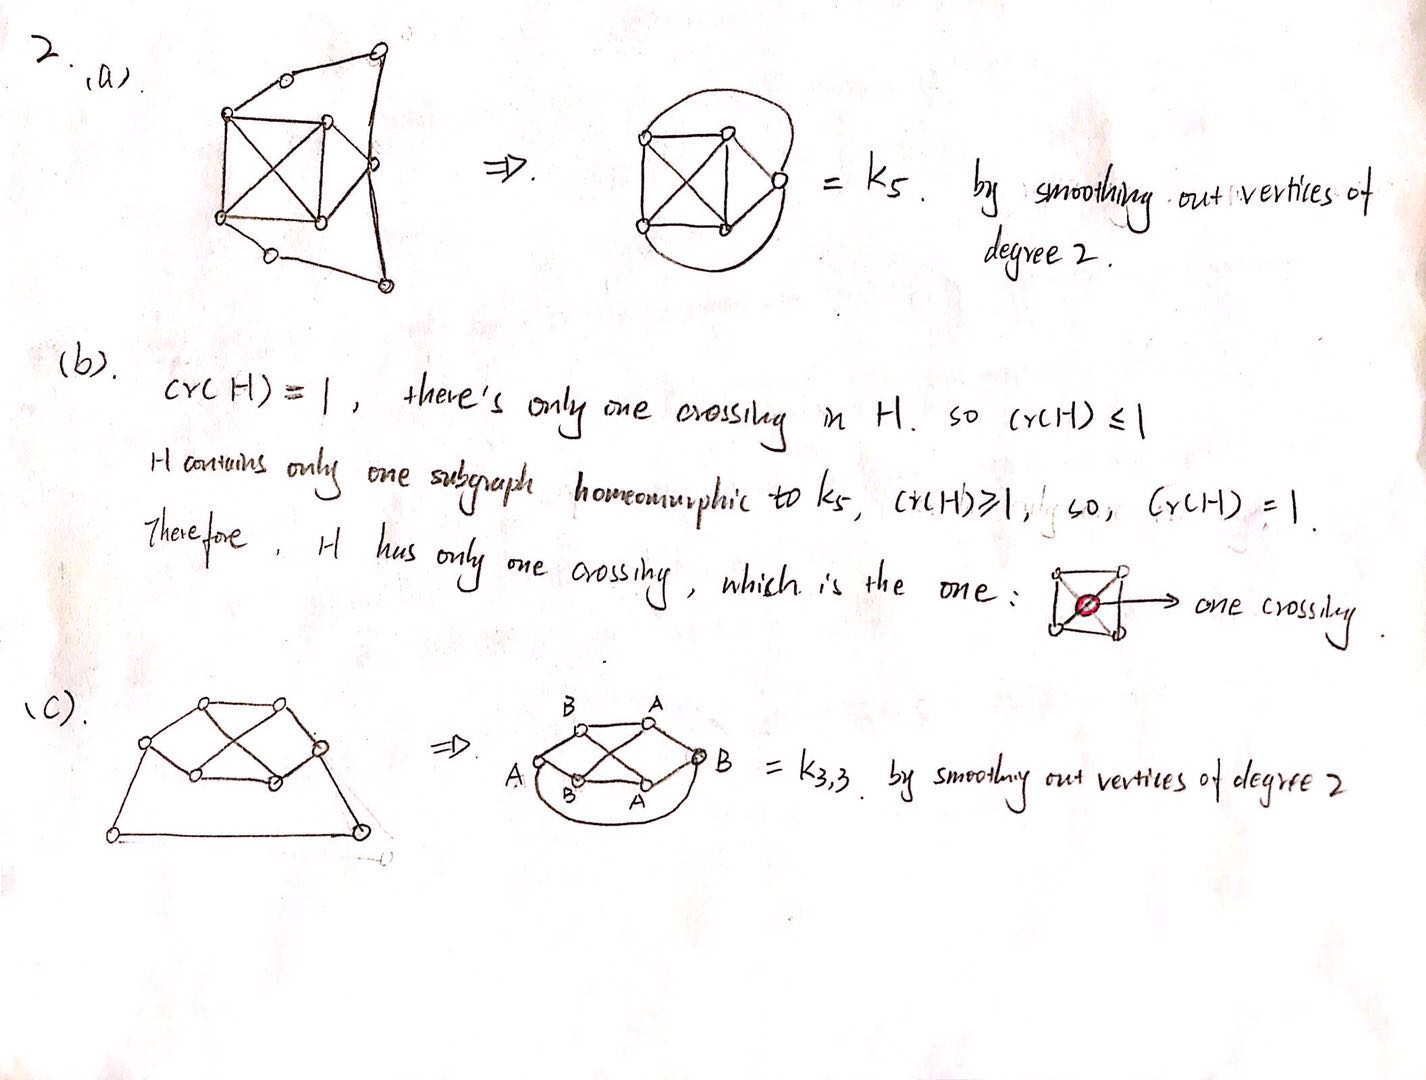 2. (a).
⇒. = K5. by smoothing out vertices of
degree 2.
(b).
cr(H) = 1, there's only one crossing in H. so cr(H) ≤ 1
H contains only one subgraph homeomurphic to k5, cr(H) ≥ 1, so, cr(H) = 1.
Therefore, H has only one crossing, which is the one: → one crossing.
(c). ⇒. B A
A B = K3,3. by smoothing out vertices of degree 2
B A